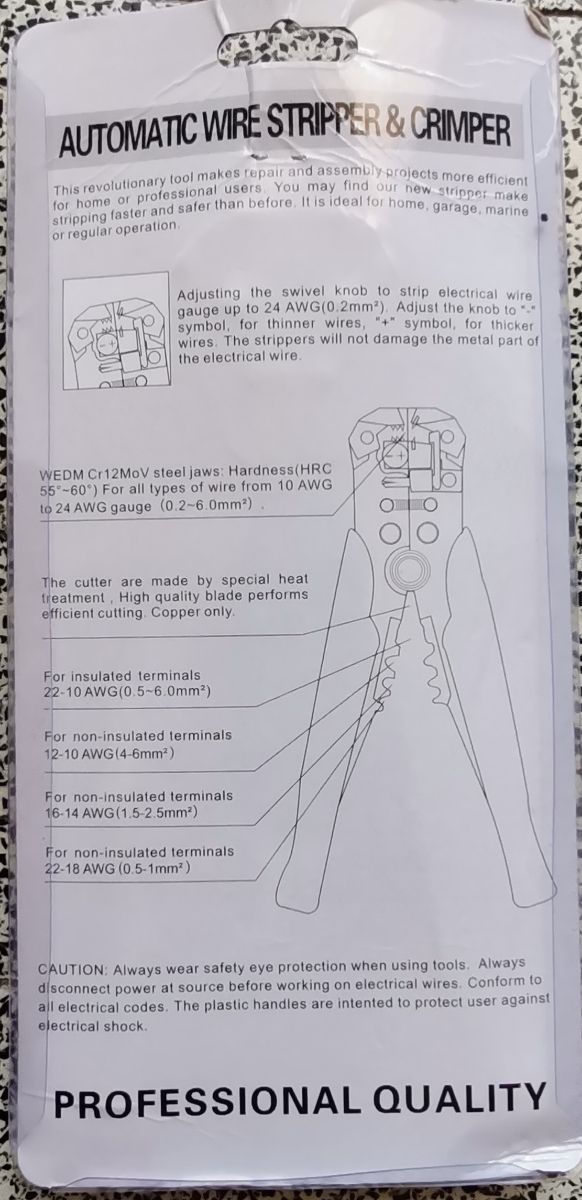 AUTOMATIC WIRE STRIPPER & CRIMPER
This revolutionary tool makes repair and assembly projects more efficient
for home or professional users. You may find our new stripper make
stripping faster and safer than before. It is ideal for home, garage, marine
or regular operation.
Adjusting the swivel knob to strip electrical wire
gauge up to 24 AWG(0.2mm²). Adjust the knob to "-"
symbol, for thinner wires, "+" symbol, for thicker
wires. The strippers will not damage the metal part of
the electrical wire.
WEDM Cr12MoV steel jaws: Hardness(HRC
55°~60°) For all types of wire from 10 AWG
to 24 AWG gauge (0.2~6.0mm²) .
The cutter are made by special heat
treatment , High quality blade performs
efficient cutting. Copper only.
For insulated terminals
22-10 AWG(0.5~6.0mm²)
For non-insulated terminals
12-10 AWG(4-6mm²)
For non-insulated terminals
16-14 AWG(1.5-2.5mm²)
For non-insulated terminals
22-18 AWG (0.5-1mm²)
CAUTION: Always wear safety eye protection when using tools. Always
disconnect power at source before working on electrical wires. Conform to
all electrical codes. The plastic handles are intented to protect user against
electrical shock.
PROFESSIONAL QUALITY